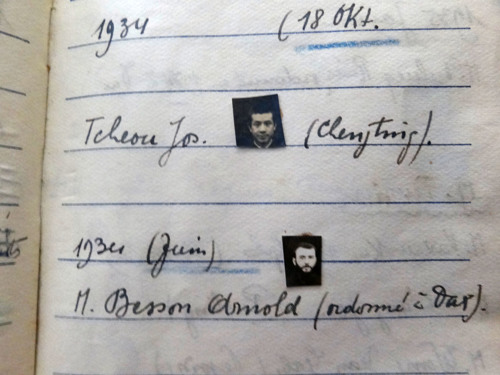 1934 (18 Okt.
Tcheou Jos. (Chengting).
(Juin)
M. Besson Arnold (ordonné à Dax).